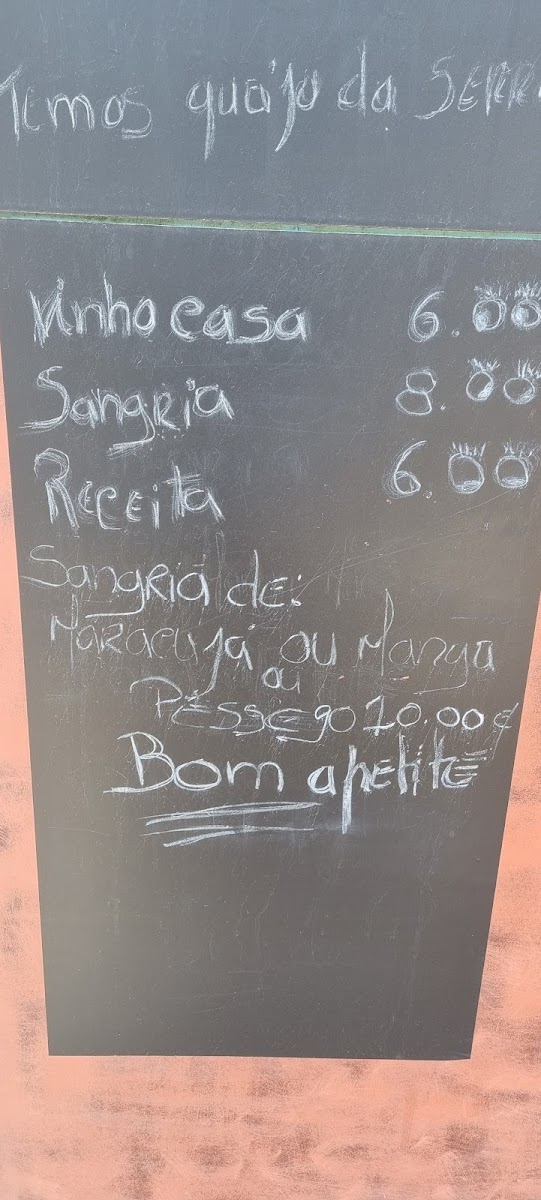 Temos quaijo da SERR
Vinho casa 6.00
Sangria 8.00
Receita 6.00
Sangria de:
Maracujá ou Manga
ou
Pêssego 10.00 €
Bom apetite